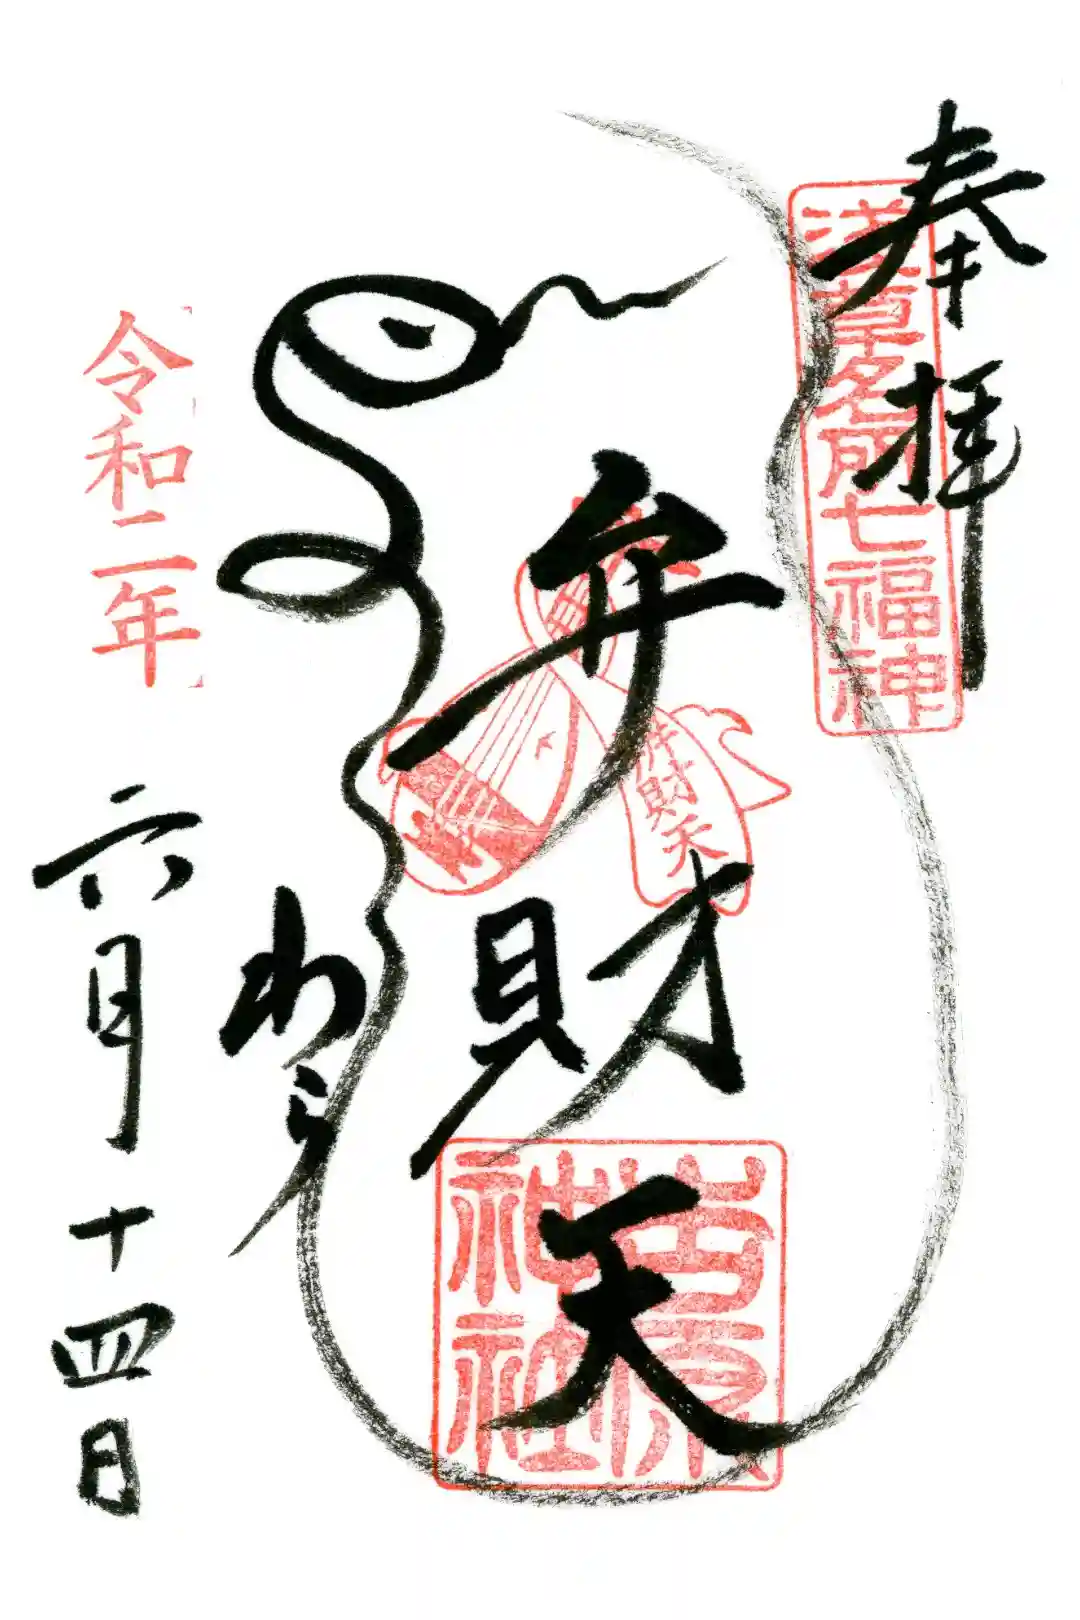 奉拝
浅草名所七福神
弁財天
弁財天
吉原神社
令和二年
六月十四日